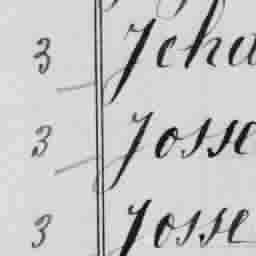 3 Jcha
3 Josse
3 Josse